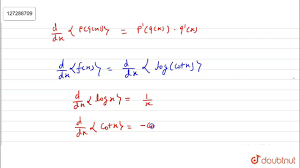 127288709
d/dx <p(q(x)> = p'(q(x)) · q'(x)
d/dx <f(x)> = d/dx < log(cotx)>
d/dx <logx> = 1/x
d/dx <cotx> = -co
doubtnut